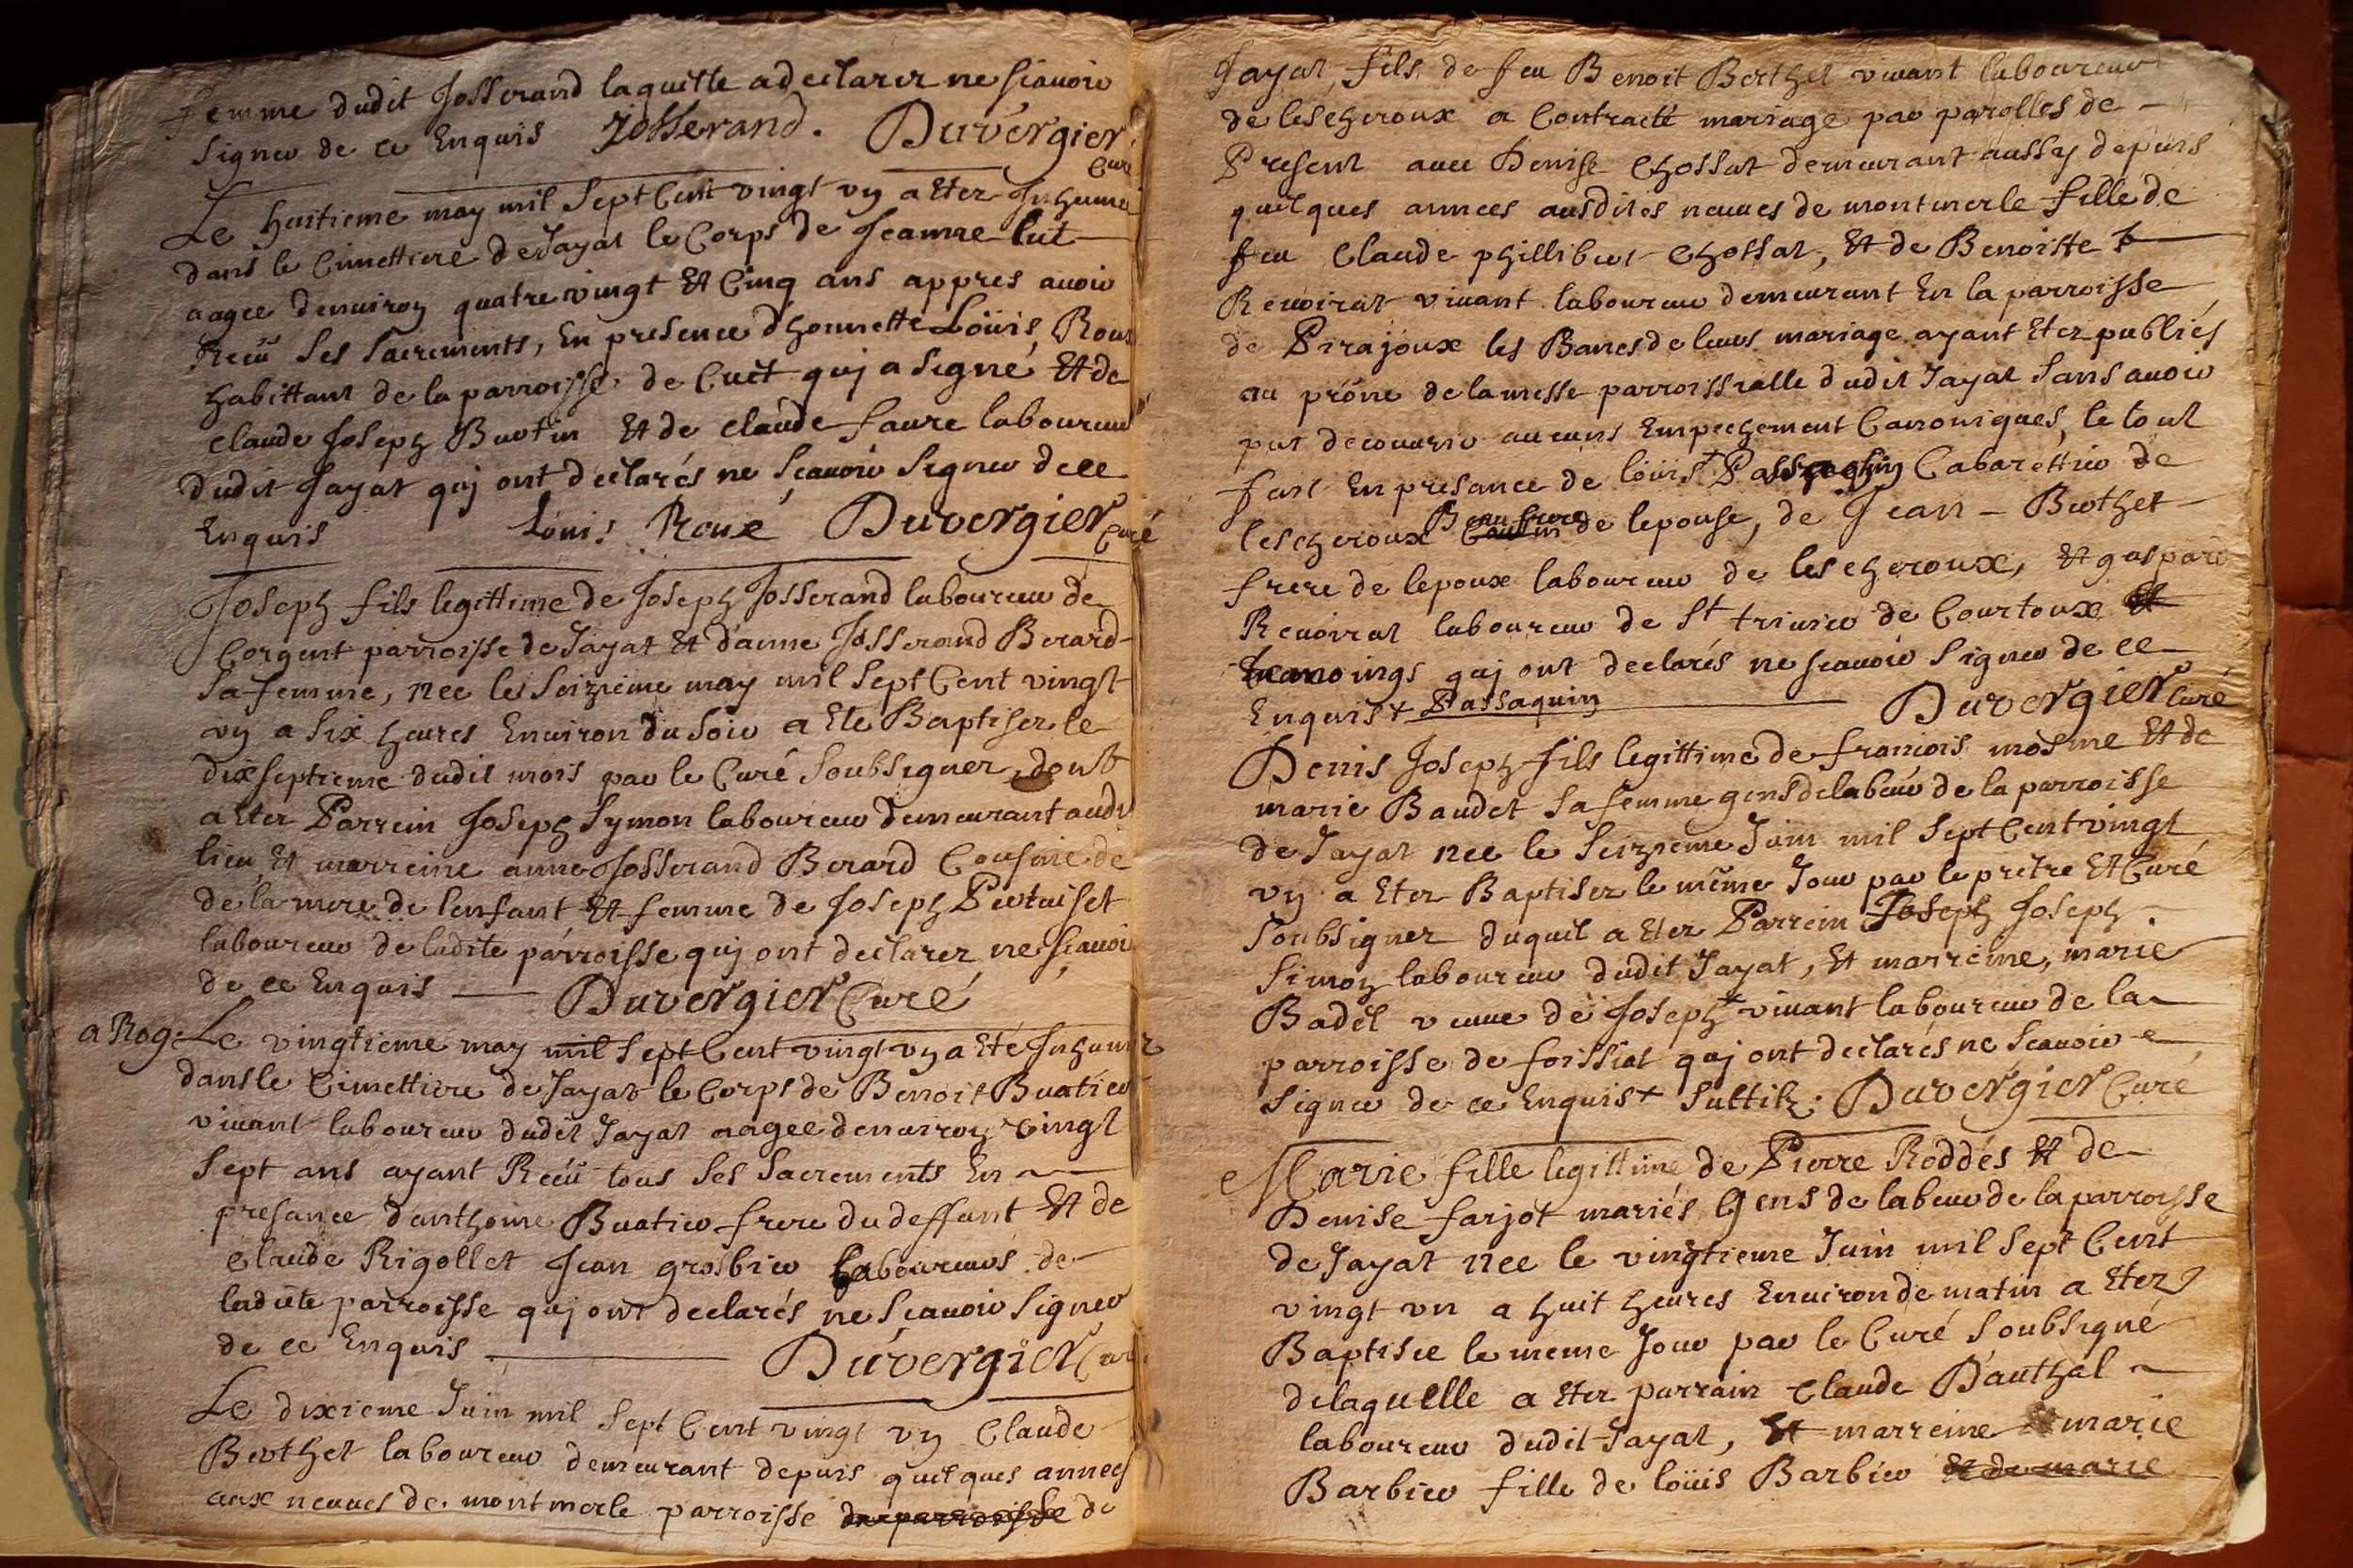 femme dudit Josserand laquelle a declarer ne sçauoir
signer de ce Enquis Josserand. Duvergier
Curé
Le huitieme may mil Sept Cent vingt vn a Eter Inhumé
dans le Cimettiere de Jayat le Corps de Jeanne lut
aagee denuiron quatre vingt Et Cinq ans appres auoir
Reçeü Ses Sacrements, En presence dhonnette Loüis Roux
habittant de la parroisse de Cuet quj a Signé Et de
Claude Joseph Burtin Et de claude faure laboureur
dudit Jayat quj ont declarés ne Sçauoir Signer de ce
Enquis Louis Roux Duvergier Curé
Joseph fils legittime de Joseph Josserand laboureur de
Corgent parroisse de Jayat Et danne Josserand Berard
Sa femme, nee le Seizieme may mil Sept Cent vingt
vn a Six heures Enuiron du Soir a Ete Baptiser le
dixseptieme dudit mois par le Curé Soubsigner, dont
a Eter Parrein Joseph Symon laboureur demeurant audit
lieu Et marreine anne Josserand Berard Cousine de
de la mere de lenfant Et femme de Joseph Pertuiset
laboureur de ladite parroisse quj ont declarer ne sçauoir
de ce Enquis Duvergier Curé
a Rog: Le vingtieme may mil Sept Cent vingt vn a Eté Inhumer
dans le Cimettiere de Jayat le Corps de Benoit Buatier
viuant laboureur dudit Jayat aagee denuiron vingt
Sept ans ayant Reçeü tous Ses Sacrements En
presance danthoine Buatier frere du deffunt Et de
Claude Rigollet Jean grosbier laboureurs de
ladite parroisse quj ont declarés ne Sçauoir Signer
de ce Enquis Duvergier Curé
Le dixieme Juin mil Sept Cent vingt vn Claude
Berthet laboureur demeurant depuis quelques annees
aux neuues de montmerle parroisse de parroisse de
Jayat, fils de feu Benoit Berthet viuant laboureur
de lescheroux a Contracté mariage par parolles de
Present auec Denise Chossat demeurant aussy depuis
quelques annees ausdites neuues de montmerle fille de
feu Claude phillibert Chossat, Et de Benoiste
Reuoirat viuant laboureur demeurant En la parroisse
de Pirajoux les Bancs de leurs mariage ayant Eter publiés
au prône de la messe parroissialle dudit Jayat Sans auoir
put decouurir aucuns Empechement Canoniques, le tout
fait En presance de loüis Passaquin Cabarettier de
lescheroux Beau frere Cousin de lepouse, de Jean Berthet
frere de lepoux laboureur de lescheroux, Et gaspard
Reuoirat laboureur de St triuier de Courtoux Et
temoings quj ont declarés ne sçauoir Signer de ce
Enquis + Passaquin Duvergier Curé
Denis Joseph fils legittime de francois mosme Et de
marie Baudet Sa femme gens de labeur de la parroisse
de Jayat nee le Seizieme Juin mil Sept Cent vingt
vn a Eter Baptiser le même Jour par le prêtre Et Curé
Soubsigner duquil a Eter Parrein Joseph Joseph
Simon laboureur dudit Jayat, Et marreine, marie
Badel veuue de Joseph + viuant laboureur de la
parroisse de foissiat quj ont declarés ne Scauoir
Signer de ce Enquis + Duvergier Curé
Marie fille legittime de Pierre Roddés Et de
Denise farjot mariés gens de labeur de la parroisse
de Jayat nee le vingtieme Juin mil Sept Cent
vingt vn a huit heures Enuiron de matin a Eter
Baptisee le meme Jour par le Curé Soubsigné
delaquelle a Eter parrain Claude Dauthal
laboureur dudit Jayat, Et marreine marie
Barbier fille de loüis Barbier Et de marie